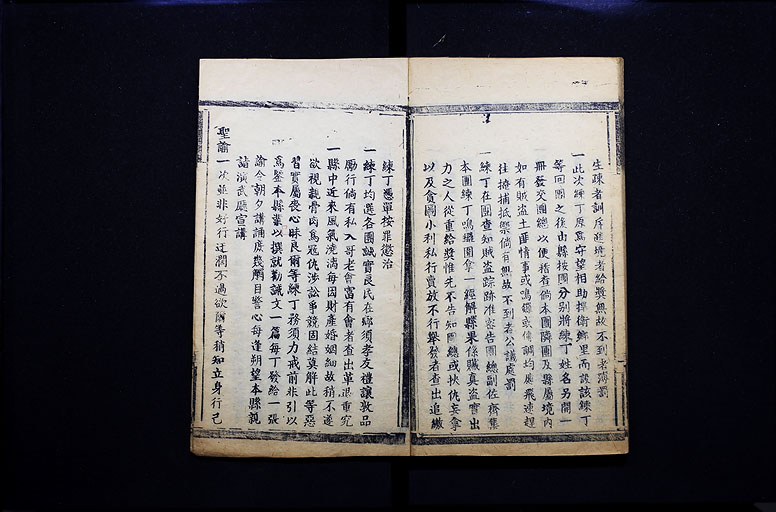 生疎者訓斥進境者給獎無故不到者薄罰
一此次練丁原爲守望相助捍衛鄉里而設該練丁
等回團之後由縣按團分别將練丁姓名另開一
冊發交團總以便稽查倘本團隣團及縣屬境内
如有賊盜土匪情事或鳴鑼或傳調均應飛速趕
往撩捕抵禦倘有無故不到者公議處罰
一練丁在團查知賊盜踪跡准密告團總副佐齊集
本團練丁鳴鑼圍拿一經解縣果係贓真盜實出
力之人從重給獎惟先不告知團總或挾仇妄拿
以及貪圖小利私行賣放不行舉發者查出追繳
練丁憑單按罪懲治
一練丁均選各團誠實良民在鄉須孝友禮讓敦品
勵行倘有私入哥老會富有會者查出革退重究
一縣中近來風氣澆漓每因財產婚姻細故稍不遂
欲視親骨肉爲冠仇涉訟爭競固結莫解此等惡
習實屬喪心昧良爾等練丁務須力戒前非引以
爲鑒本縣輩以撰就勸誡文一篇每丁發給一張
諭令朝夕講誦庶幾觸目警心每逢朔望本縣親
詣演武廳宣講
聖諭一次並非好行迂濶不過欲爾等稍知立身行己